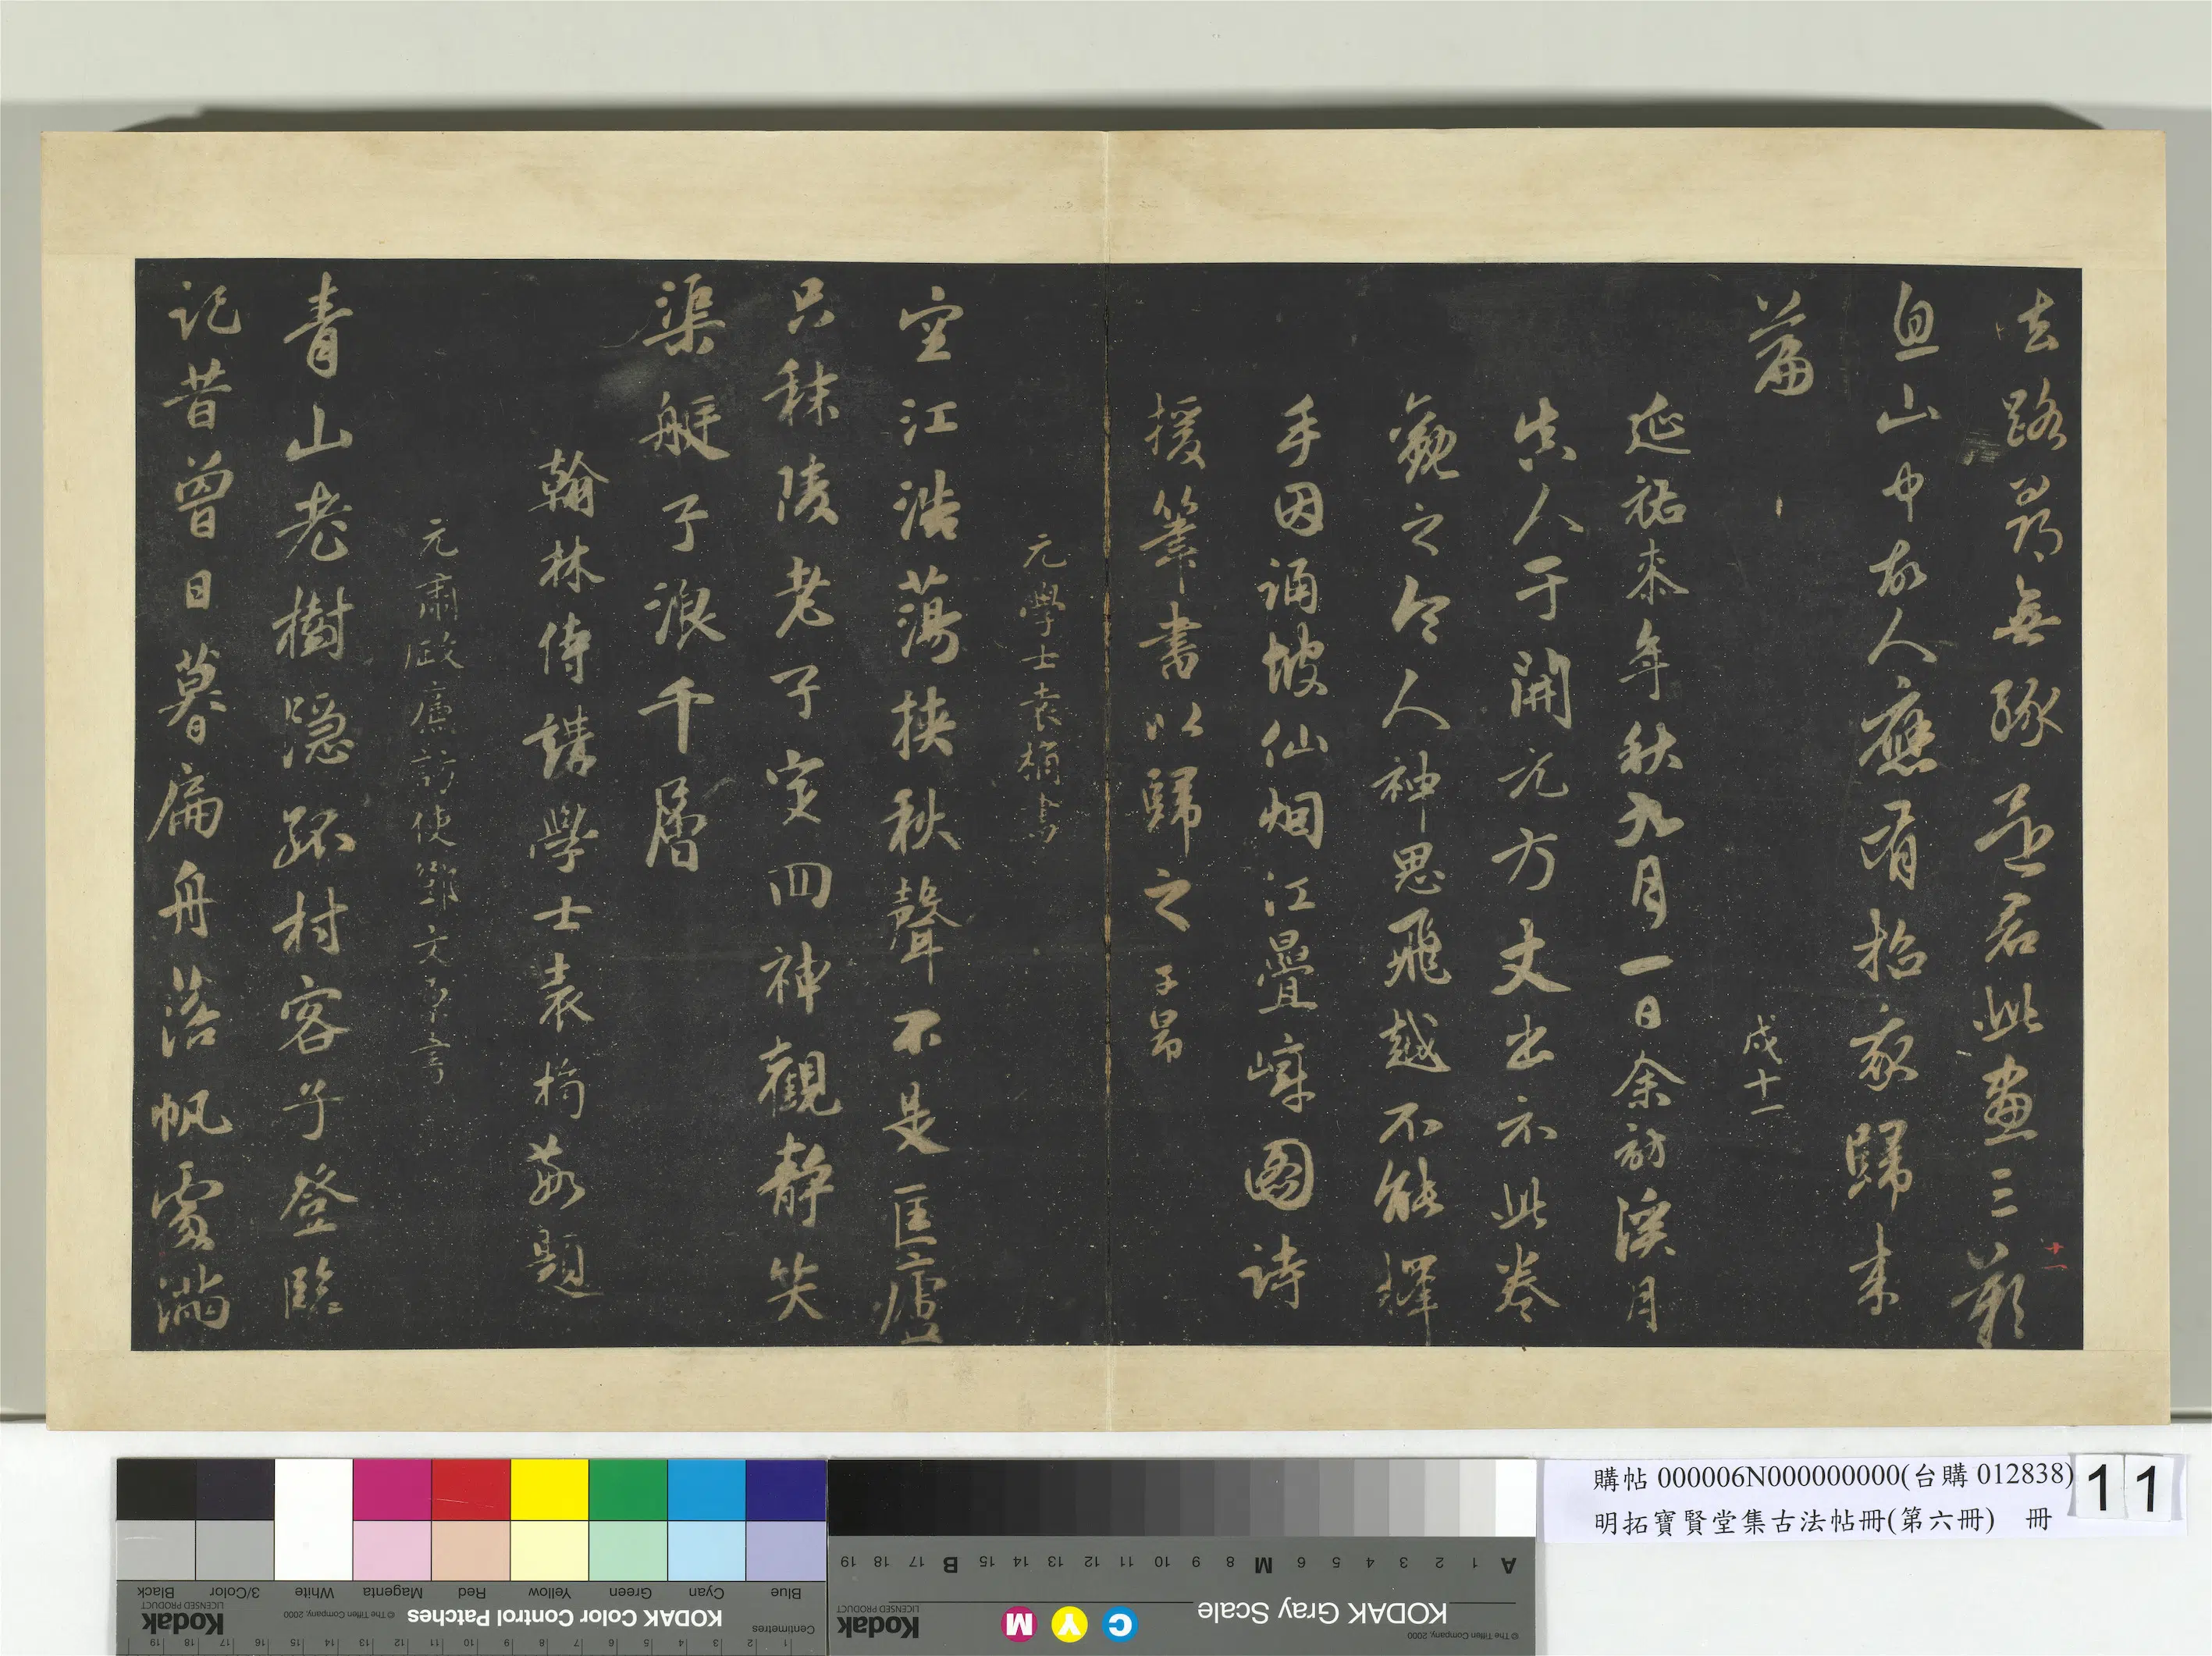 去路尋無緣還君此畫三歎
息山中故人應有招我歸來
篇
戌十一
延祐柒年秋九月一日余訪溪月
真人于開元方丈出示此卷
觀之令人神思飛越不能釋
手因誦坡仙烟江疊嶂圖詩
援筆書以歸之子昂
元學士袁桷書
空江浩蕩挾秋聲不是匡廬
只秣陵老子定回神觀靜笑
渠艇子浪千層
翰林侍講學士袁桷敬題
元肅政廉訪使鄧文原書
青山老樹隱孤村客子登臨
記昔曾日暮扁舟落帆處滿
十一
購帖 000006N000000000(台購 012838)
明拓寶賢堂集古法帖冊(第六冊) 冊
11
KODAK Color Control Patches
Blue Cyan Green Yellow Red Magenta White 3/Color Black
Kodak
LICENSED PRODUCT
© The Tiffen Company, 2000
Centimetres
1 2 3 4 5 6 7 8 9 10 11 12 13 14 15 16 17 18 19
KODAK Gray Scale
C Y M
Kodak
LICENSED PRODUCT
© The Tiffen Company, 2000
A 1 2 3 4 5 6 M 8 9 10 11 12 13 14 15 B 17 18 19